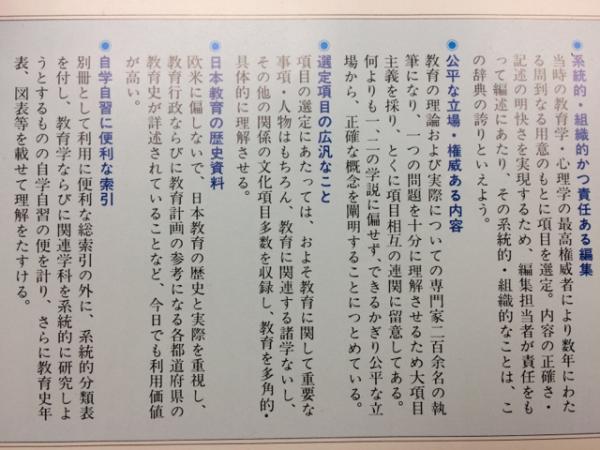 ●系統的・組織的かつ責任ある編集
当時の教育学・心理学の最高権威者により数年にわた
る周到なる用意のもとに項目を選定。内容の正確さ・
記述の明快さを実現するため、編集担当者が責任をも
って編述にあたり、その系統的・組織的なことは、こ
の辞典の誇りといえよう。
●公平な立場・権威ある内容
教育の理論および実際についての専門家二百余名の執
筆になり、一つの問題を十分に理解させるため大項目
主義を採り、とくに項目相互の連関に留意してある。
何よりも一、二の学説に偏せず、できるかぎり公平な立
場から、正確な概念を闡明することにつとめている。
●選定項目の広汎なこと
項目の選定にあたっては、およそ教育に関して重要な
事項・人物はもちろん、教育に関連する諸学ないし、
その他の関係の文化項目多数を収録し、教育を多角的・
具体的に理解させる。
●日本教育の歴史資料
欧米に偏しないで、日本教育の歴史と実際を重視し、
教育行政ならびに教育計画の参考になる各都道府県の
教育史が詳述されていることなど、今日でも利用価値
が高い。
●自学自習に便利な索引
別冊として利用に便利な総索引の外に、系統的分類表
を付し、教育学ならびに関連学科を系統的に研究しよ
うとするものの自学自習の便を計り、さらに教育史年
表、図表等を載せて理解をたすける。